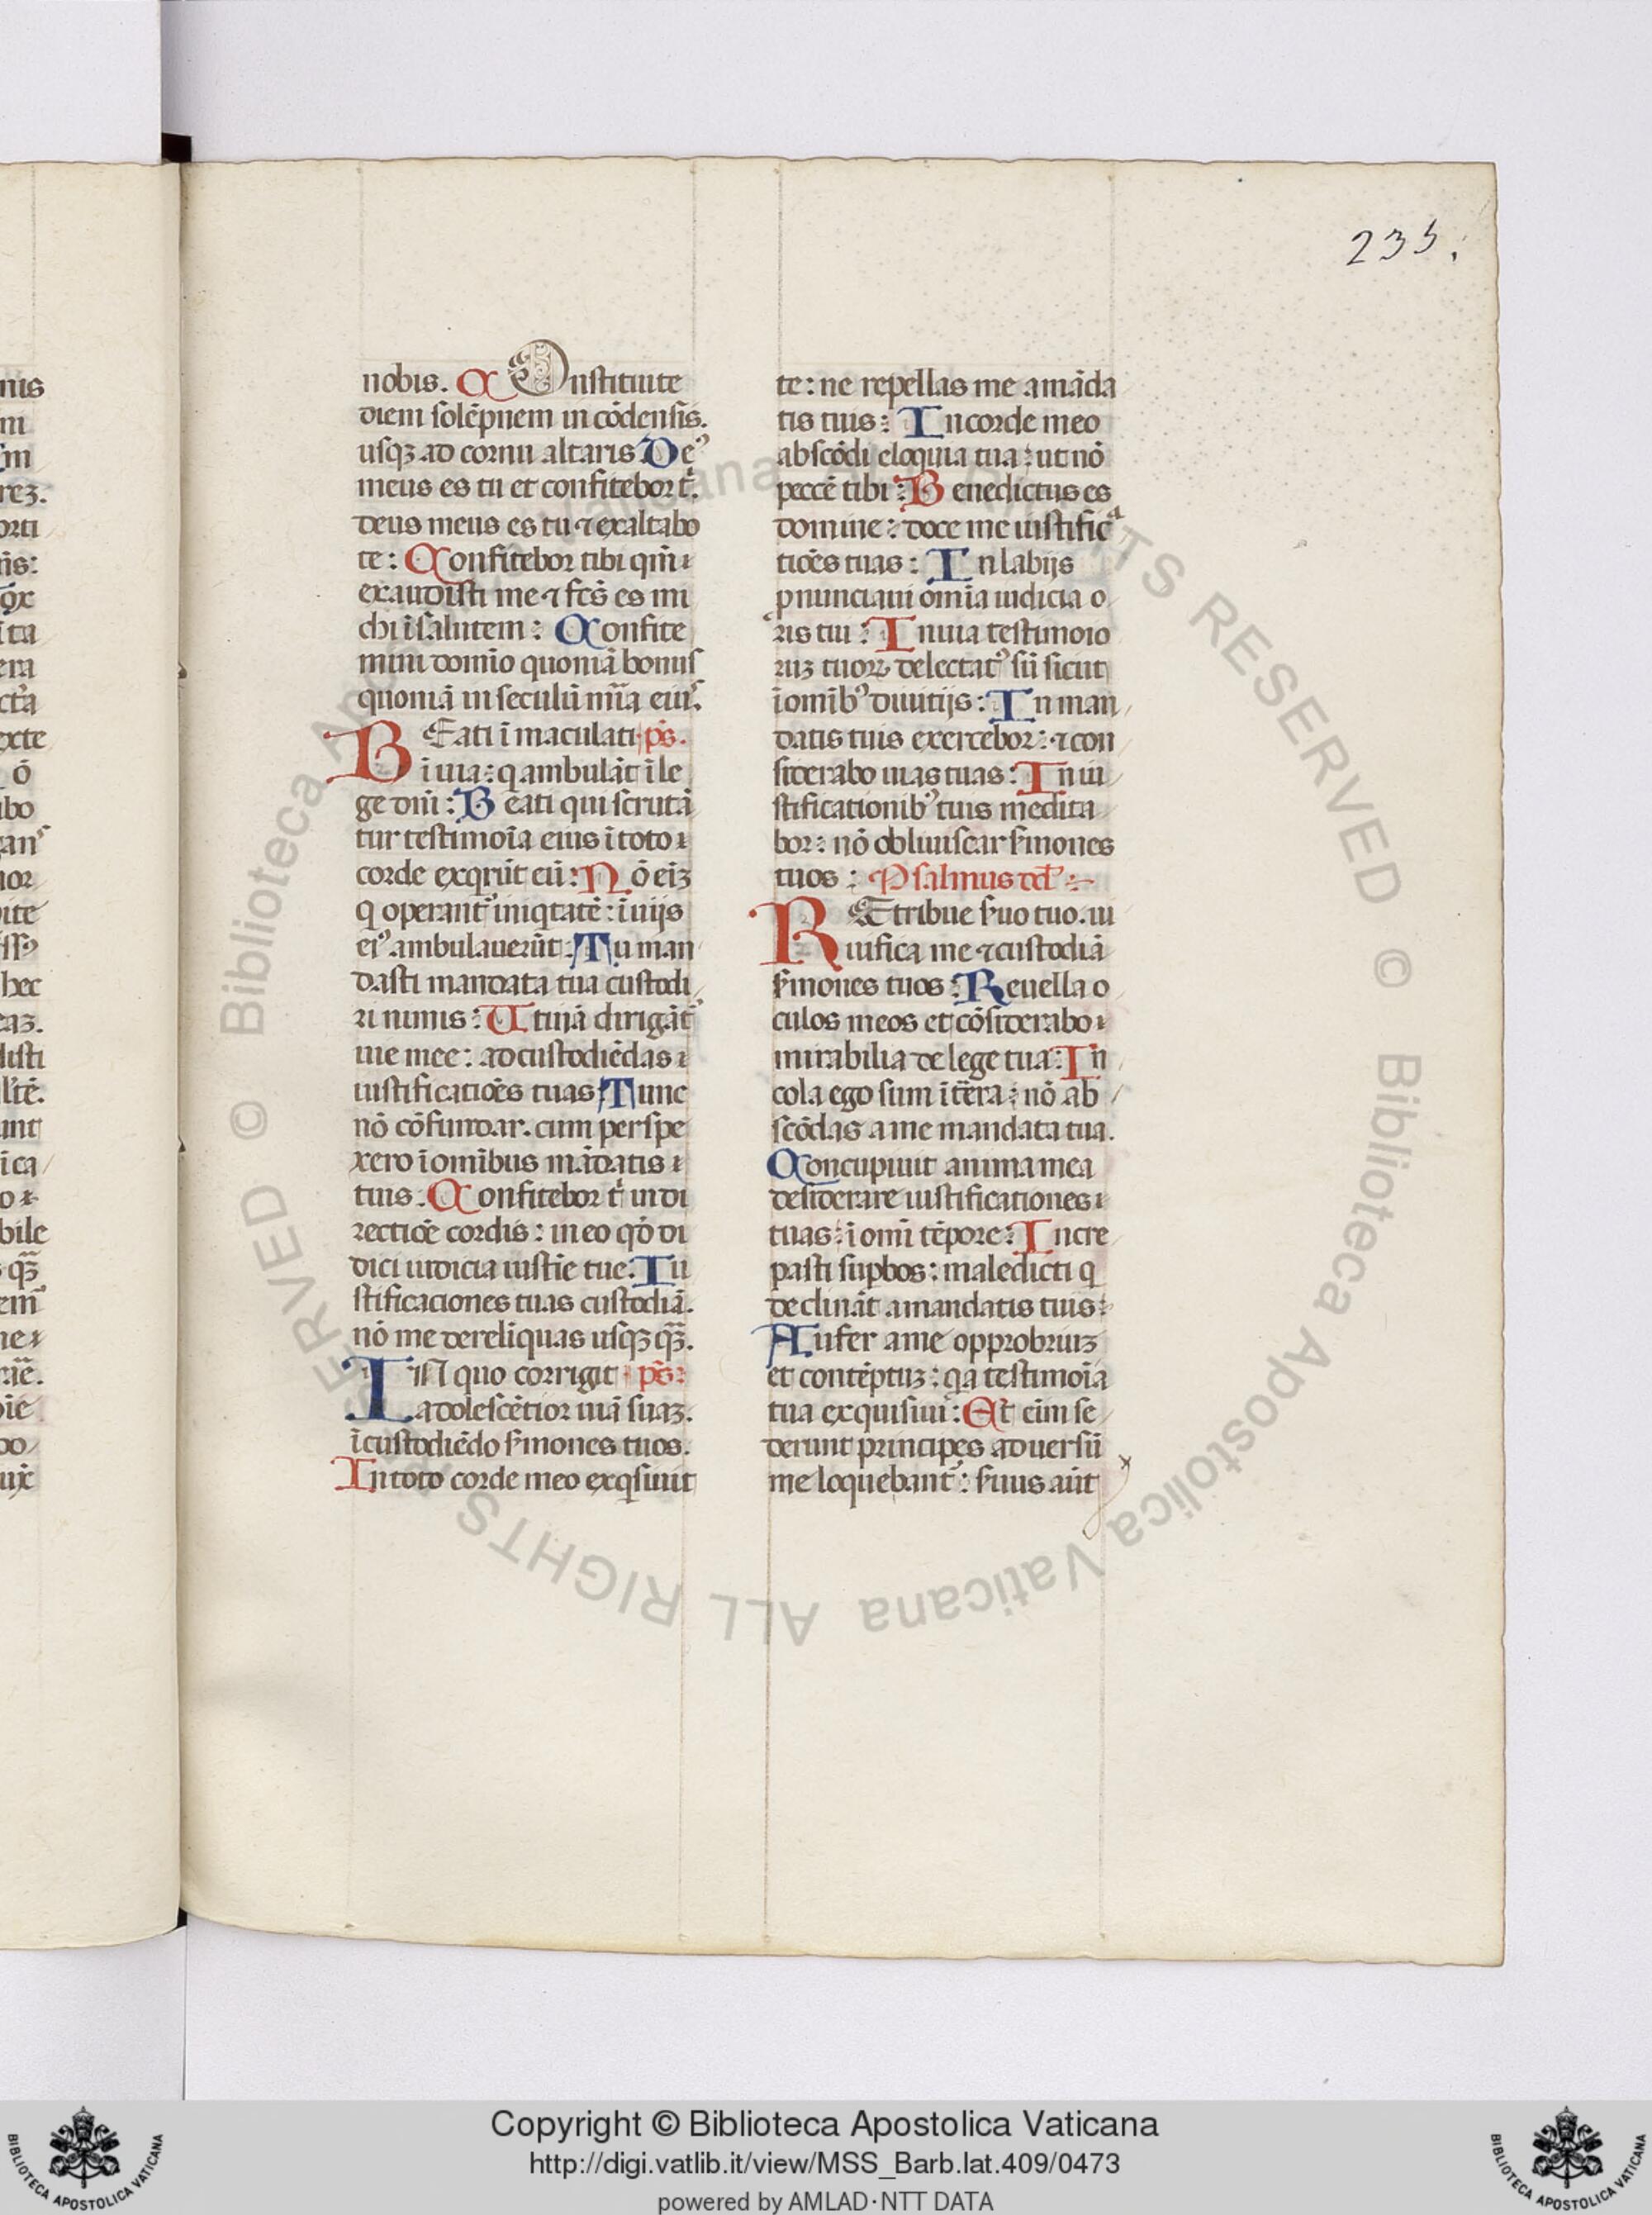 235.
nobis. C Onstituite
diem solēpnem in cōdensis.
usqꝫ ad cornu altaris De⁹
meus es tu et confitebor t̄.
deus meus es tu ⁊ exaltabo
te: Confitebor tibi qm̄
exaudisti me ⁊ fc̄s es mi
chi ī salutem: Confite
mini domīo quoniā bonus
quoniā in seculū mīa eius.
BEati īmaculati ps̄.
ī uia: q ambulāt ī le
ge dn̄i: Beati qui scrutā
tur testimoīa eius ī toto
corde exqrūt eū: Nō eīꝫ
q operant̄ iniqtatē: ī uijs
ei⁹ ambulauerūt: Tu man
dasti mandata tua custodi
ri nimis: Utinā dirigāt̄
uie mee: ad custodiēdas
iustificatiōes tuas Tunc
nō cōfundar. cum perspe
xero ī omībus mādatis
tuis. Confitebor t̄ in di
rectiōe cordis: in eo qō di
dici iudicia iustīe tue: Iu
stificaciones tuas custodiā.
nō me derelīquas usqꝫ qꝫ̄.
IN quo corrigit ps̄:
adolescētior uiā suaꝫ.
ī custodiēdo s̄mones tuos.
In toto corde meo exqsiuit
te: ne repellas me a māda
tis tuis: In corde meo
abscōdi eloquia tua: ut nō
peccē tibi: Benedictus es
domine: doce me iustificᵃ
tiōes tuas: In labijs
pnunciaui omīa iudicia o
ris tui: In uia testimoio
ruꝫ tuoꝝ delectat⁹ sū sicut
ī omīb⁹ diuitijs: In man
datis tuis exercebor: ⁊ con
siderabo uias tuas: In iu
stificationib⁹ tuis medita
bor: nō obliuiscar s̄mones
tuos: Psalmus dd̄
REtribue s̄uo tuo. ui
uifica me ⁊ custodiā
s̄mones tuos: Reuella o
culos meos et cōsiderabo
mirabilia de lege tua: In
cola ego sum ī tēra: nō ab
scōdas a me mandata tua.
Concupiuit anima mea
desiderare iustificationes
tuas: ī omī tēpore: Incre
pasti supbos: maledicti q
declināt a mandatis tuis:
Aufer a me opprobriuꝫ
et contēptuꝫ: qa testimoīa
tua exquisiui: Et eīm se
derunt principes aduersū
me loquebant̄: s̄uus aūt
Copyright © Biblioteca Apostolica Vaticana
http://digi.vatlib.it/view/MSS_Barb.lat.409/0473
powered by AMLAD·NTT DATA